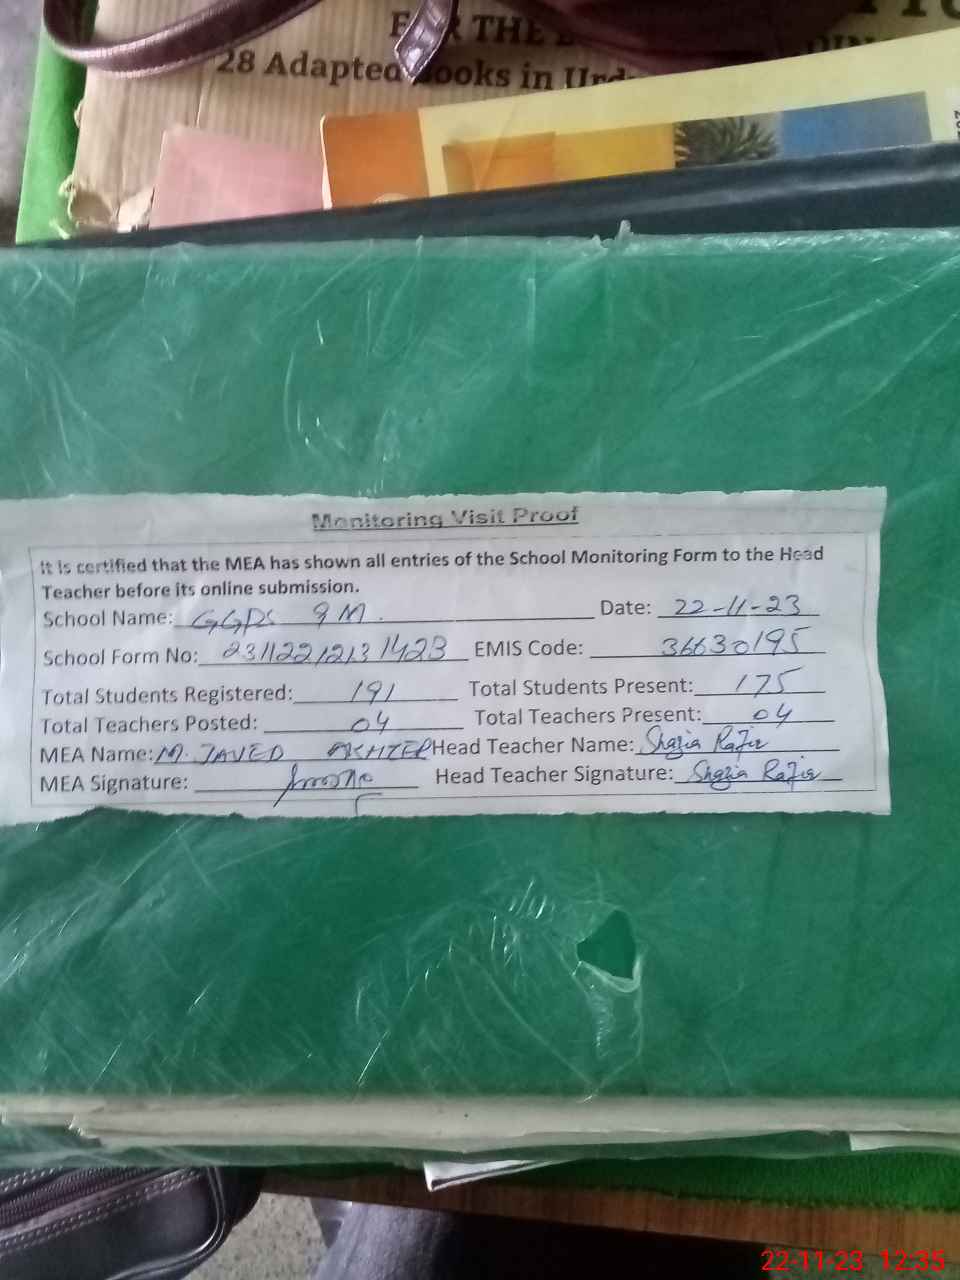 FOR THE
28 Adapted Books in Urdu
Monitoring Visit Proof
It is certified that the MEA has shown all entries of the School Monitoring Form to the Head
Teacher before its online submission.
School Name: GGPS 9M. Date: 22-11-23
School Form No: 23112212131423 EMIS Code: 36630195
Total Students Registered: 191 Total Students Present: 175
Total Teachers Posted: 04 Total Teachers Present: 04
MEA Name: M. JAVED AKHTER Head Teacher Name: Shazia Rafiq
MEA Signature: Head Teacher Signature: Shazia Rafiq
22-11-23 12:35